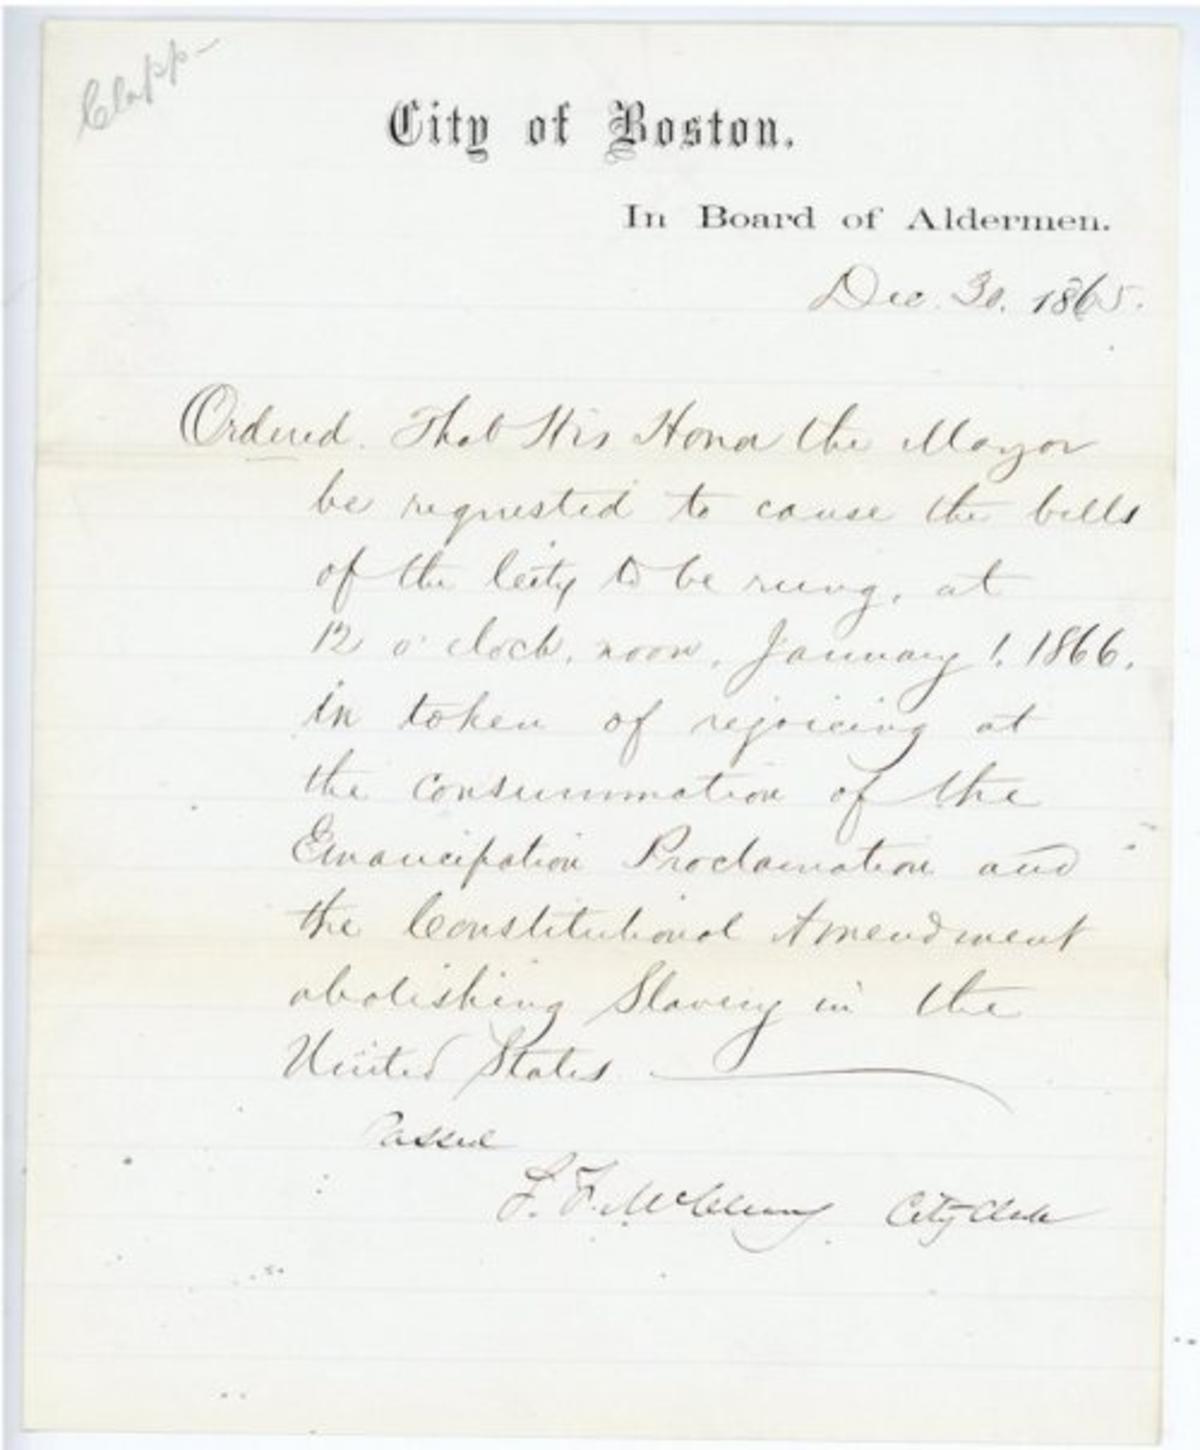 Clapp-
City of Boston.
In Board of Aldermen.
Dec. 30. 1865.
Ordered. That His Honor the Mayor
be requested to cause the bells
of the City to be rung, at
12 o'clock, noon, January 1. 1866.
in token of rejoicing at
the consummation of the
Emancipation Proclamation and
the Constitutional Amendment
abolishing Slavery in the
United States.
Passed
S. F. McCleary City Clerk